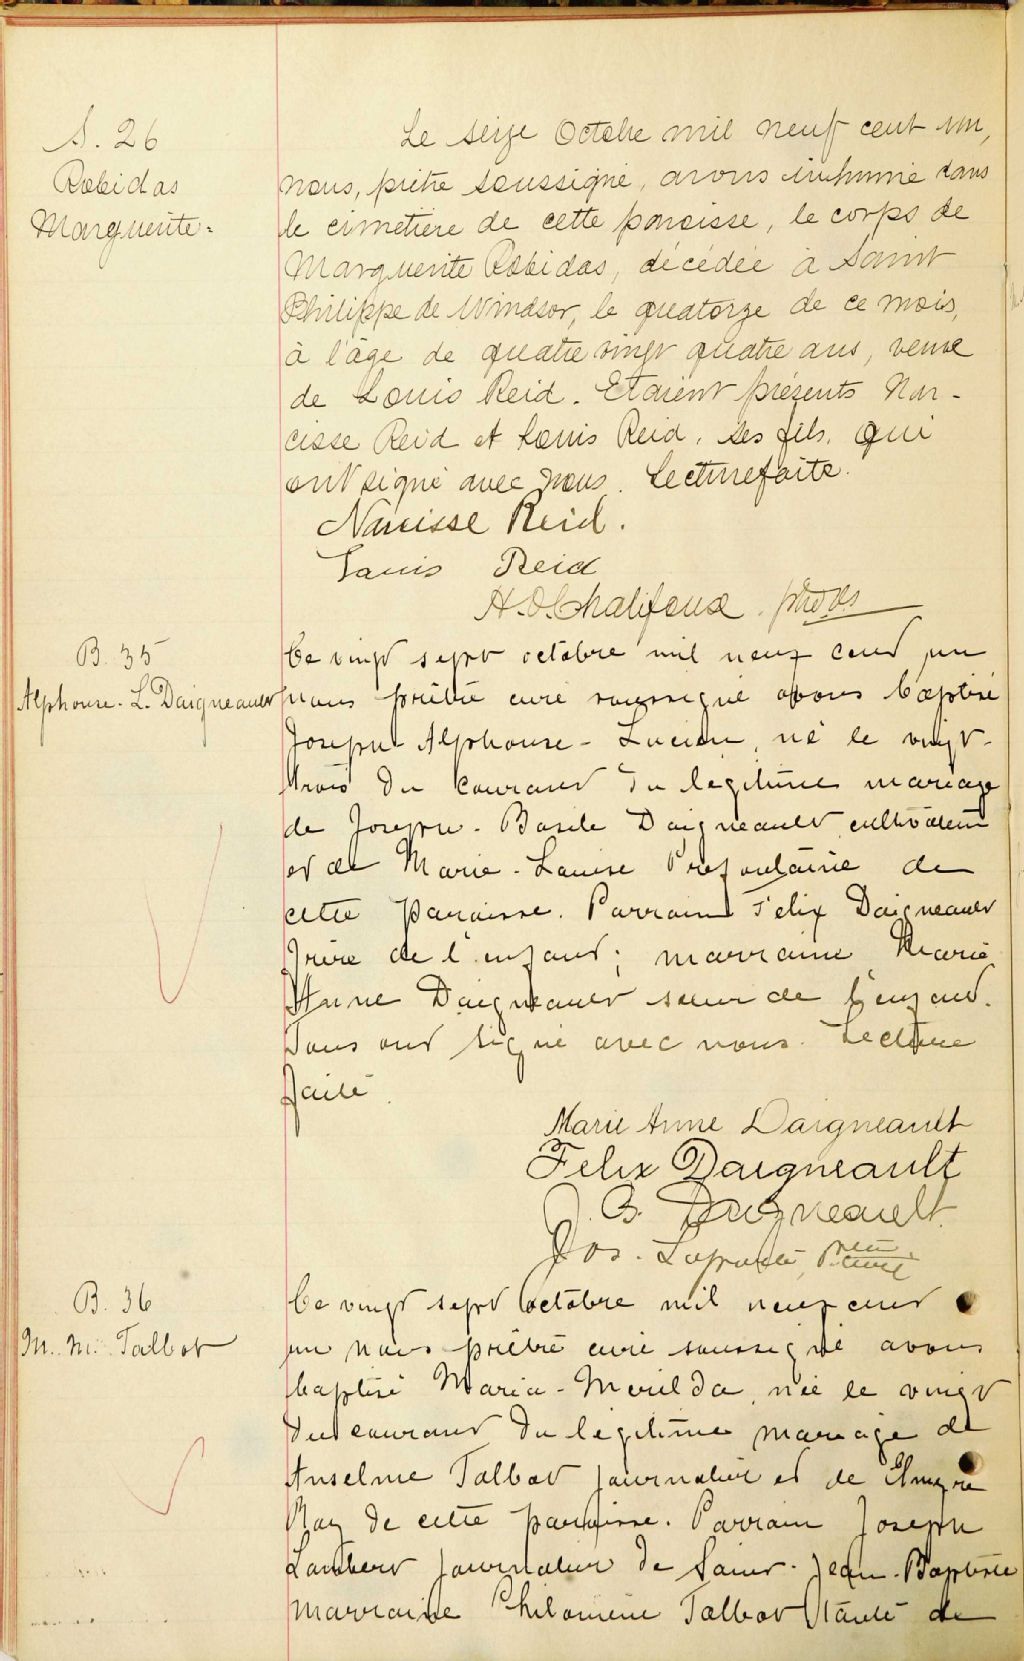 S. 26
Robidas
Marguerite.
Le seize Octobre mil neuf cent un,
nous, prêtre soussigné, avons inhumé dans
le cimetière de cette paroisse, le corps de
Marguerite Robidas, décédée à Saint
Philippe de Windsor, le quatorze de ce mois,
à l'âge de quatre vingt quatre ans, veuve
de Louis Reid. Etaient présents Nar-
cisse Reid et Louis Reid, ses fils, qui
ont signé avec nous. Lecture faite.
Narcisse Reid.
Louis Reid
H. O. Chalifoux
B. 35
Alphonse. L. Daigneault
Ce vingt sept octobre mil neuf cent un
nous prêtre curé soussigné avons baptisé
Joseph-Alphonse-Lucien, né le vingt-
trois du courant du légitime mariage
de Joseph-Basile Daigneault cultivateur
et de Marie-Louise Préfontaine de
cette paroisse. Parrain Felix Daigneault
frère de l'enfant; marraine Marie
Anne Daigneault sœur de l'enfant.
Tous ont signé avec nous. Lecture
faite.
Marie Anne Daigneault
Felix Daigneault
J. B. Daigneault
Jos. Laporte, Ptre curé
B. 36
M. M. Talbot
Ce vingt sept octobre mil neuf cent
un nous prêtre curé soussigné avons
baptisé Maria-Merilda, née le vingt
du courant du légitime mariage de
Anselme Talbot journalier et de Elmyre
Roy de cette paroisse. Parrain Joseph
Lambert journalier de Saint-Jean-Baptiste
marraine Philomène Talbot tante de